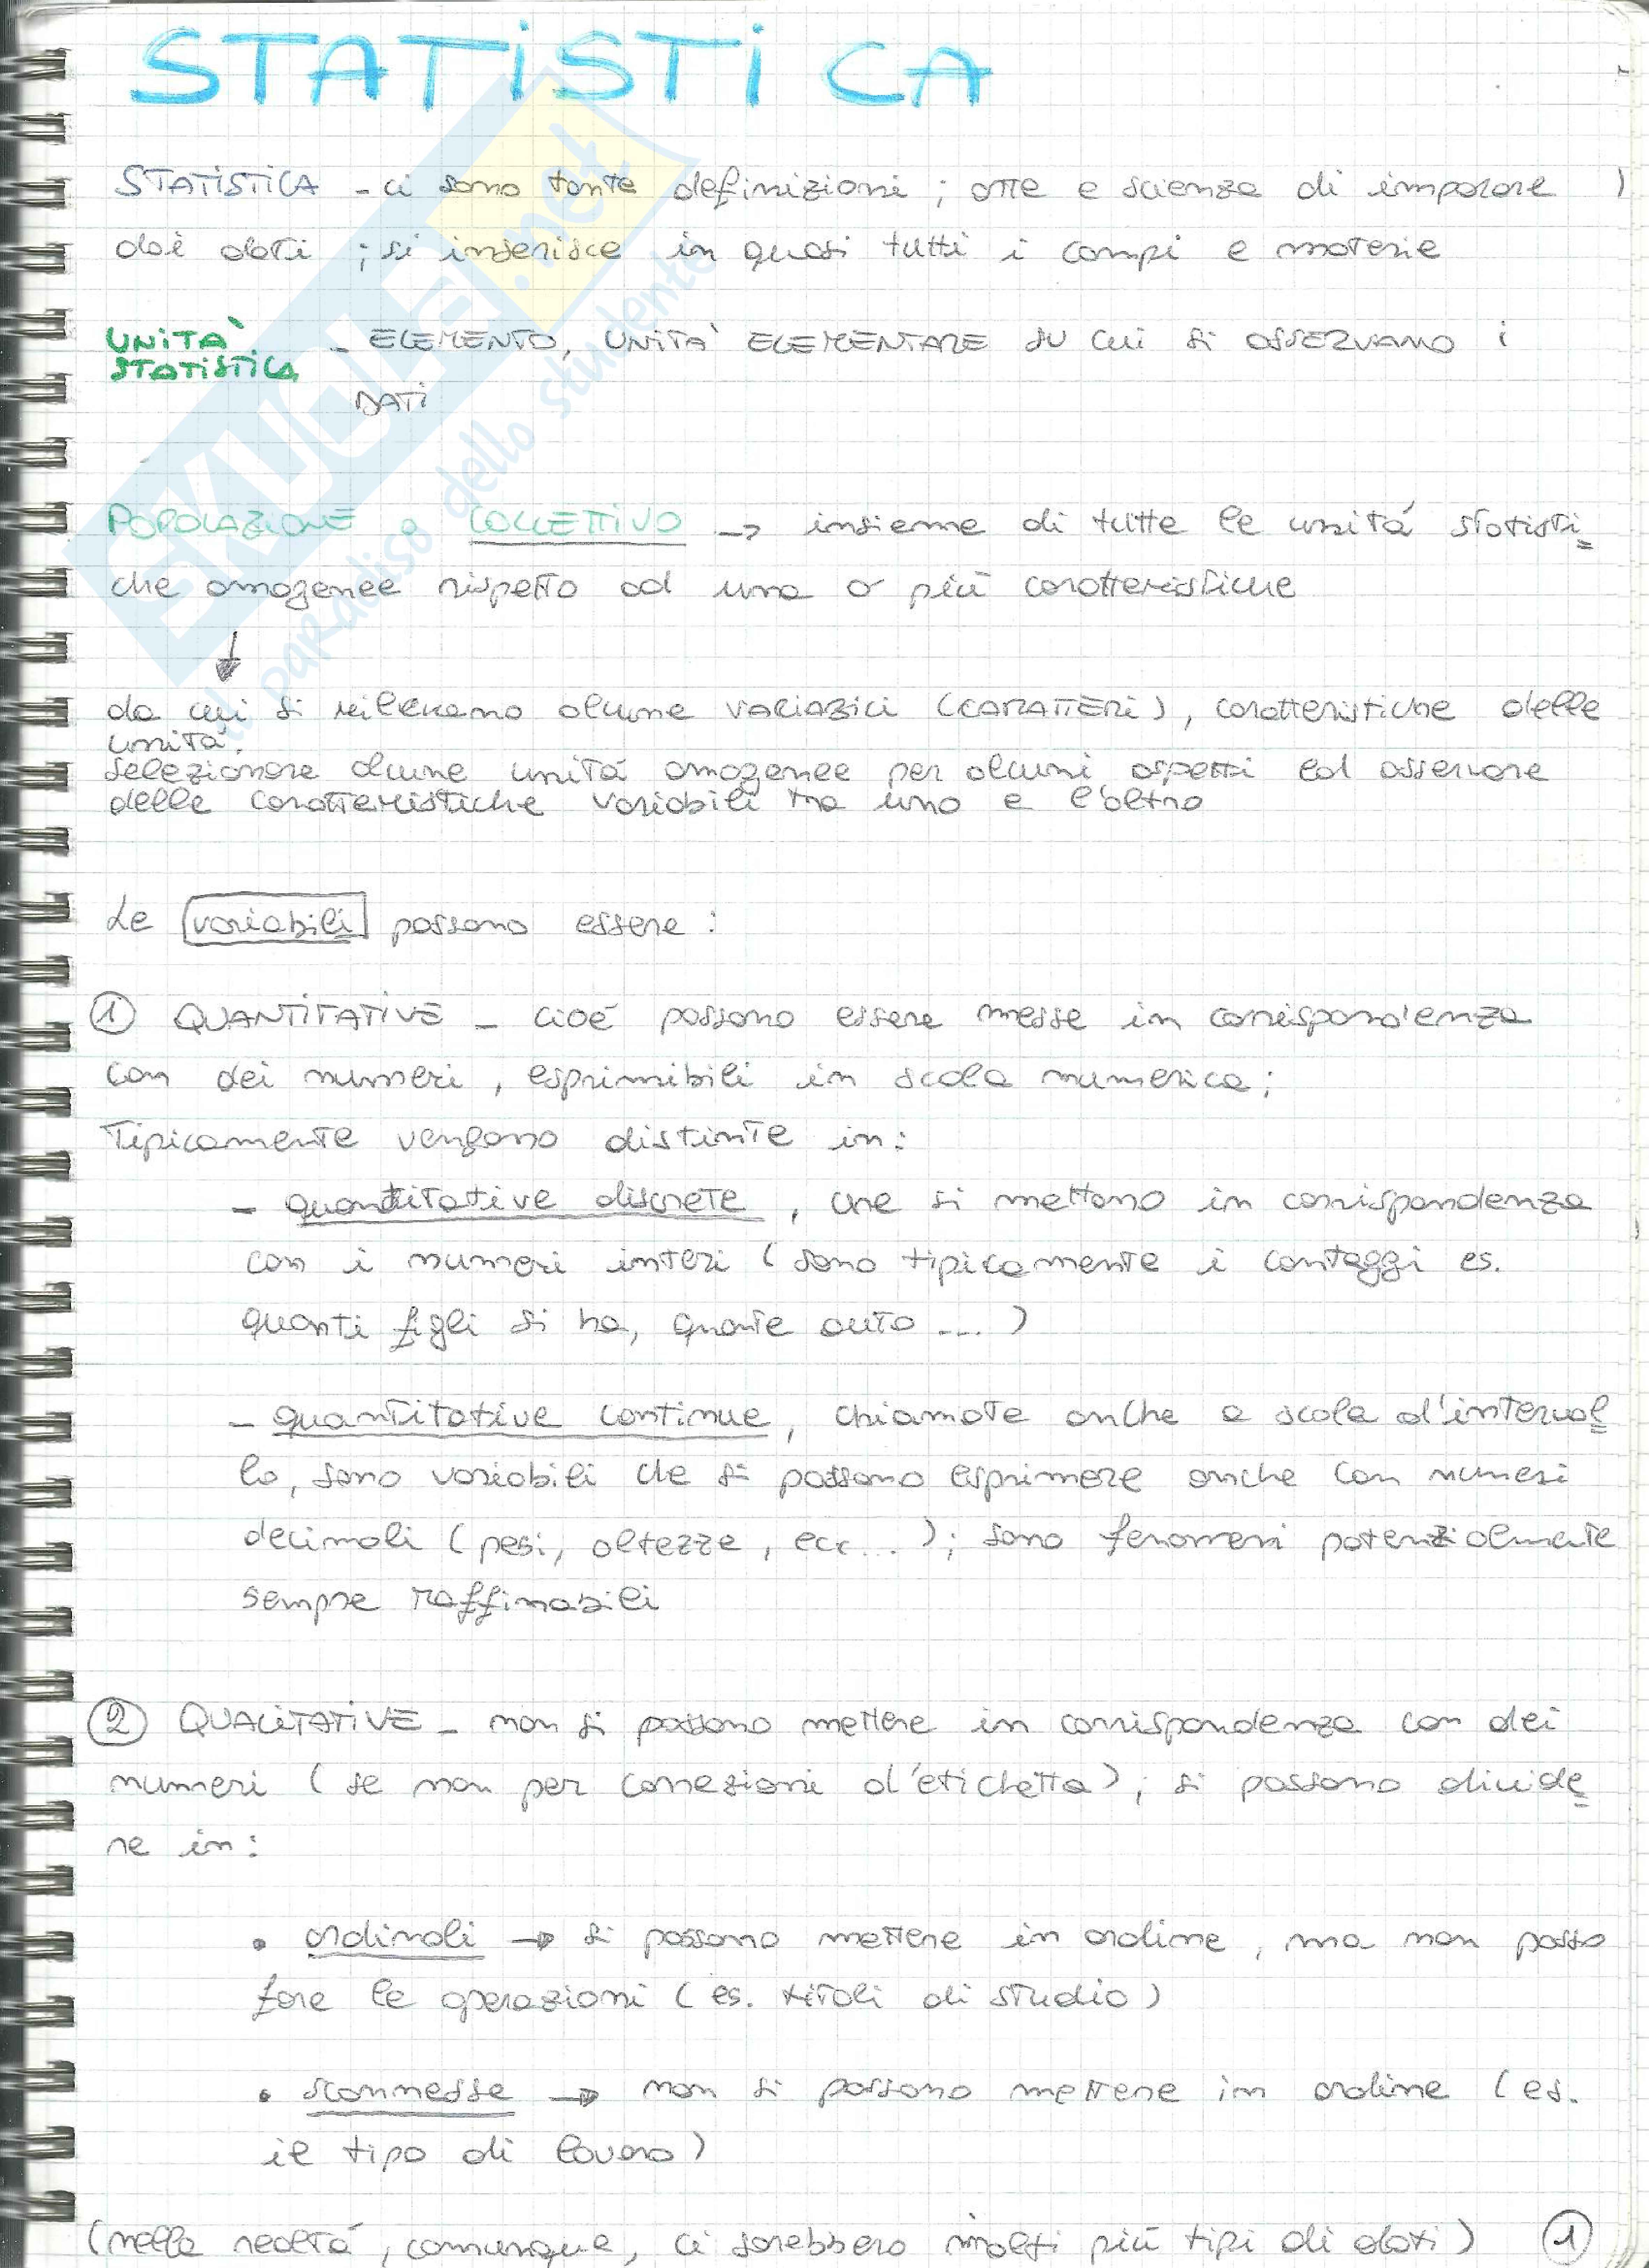 STATISTICA
STATISTICA - ci sono tante definizioni; arte e scienza di imparare
dai dati ; si inserisce in quasi tutti i campi e materie
UNITÀ STATISTICA - ELEMENTO, UNITÀ ELEMENTARE SU cui si OSSERVANO i
DATI
POPOLAZIONE o COLLETTIVO → insieme di tutte le unitá statisti=
che omogenee rispetto ad una o più caratteristiche
↓
da cui si rilevano alcune VARIABILI (CARATTERI), caratteristiche delle
unità.
Selezionare alcune unitá omogenee per alcuni aspetti ed osservare
delle caratteristiche variabili tra uno e l'altro
Le variabili possono essere :
1 QUANTITATIVE - cioé possono essere messe in corrispondenza
con dei numeri, esprimibili in scala numerica;
Tipicamente vengono distinte in:
- quantitative discrete, che si mettono in corrispondenza
con i numeri interi (sono tipicamente i conteggi es.
quanti figli si ha, quante auto ...)
- quantitative continue, chiamate anche a scala d'interval=
lo, sono variabili che si possono esprimere anche con numeri
decimali (pesi, altezze, ecc...); sono fenomeni potenzialmente
sempre raffinabili
2 QUALITATIVE - non si possono mettere in corrispondenza con dei
numeri (se non per d'etichetta); si possono divide=
re in:
• ordinali → si possono mettere in ordine, ma non posso
fare le operazioni (es. titoli di studio)
• sconnesse → non si possono mettere in ordine (es.
il tipo di lavoro)
(nella realtá, comunque, ci sarebbero molti più tipi di dati) 1
SKUOLA.net
il paradiso dello studente